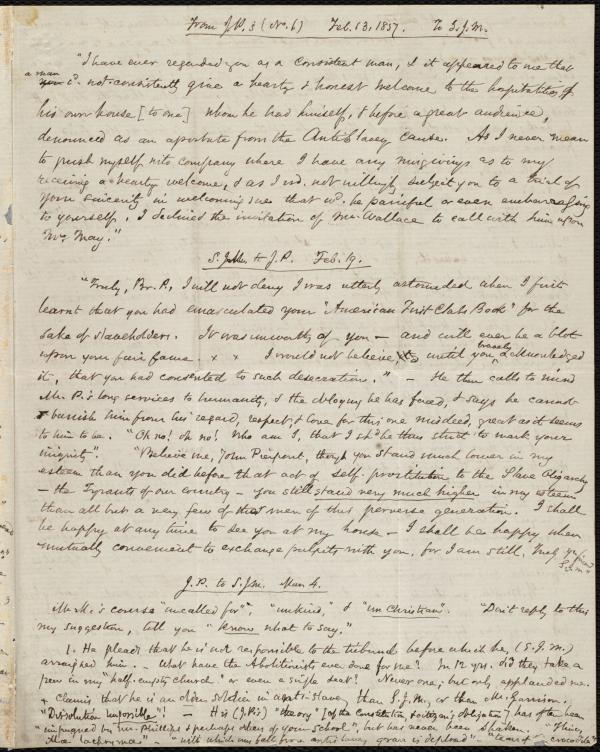 From J.P. 3 (No. 6) Feb. 13, 1857. To S.J.M.
"I have ever regarded you as a consistent man, & it appeared to me that
a man cd. not consistently give a hearty & honest welcome to the hospitalities of
his own house [to one] whom he had himself, & before a great audience,
denounced as an apostate from the AntiSlavery cause. As I never mean
to push myself into company where I have any misgivings as to my
receiving a hearty welcome, & as I wd. not willingly subject you to a trial of
your sincerity in welcoming me that wd. be painful or even embarrassing
to yourself, I declined the invitation of Mr. Wallace to call with him upon
Mrs. May."
S.J.M. to J.P. Feb. 19.
"Truly, Br. P., I will not deny I was utterly astounded when I first
learnt that you had emasculated your "American First Class Book" for the
sake of slaveholders. It was unworthy of you – and will ever be a blot
upon your fair fame. x x I would not believe, until you expressly acknowledged
it, that you had consented to such desecrations." – He then calls to mind
Mr. P.'s long services to humanity, & the obloquy he has faced, & says he cannot
banish him from his regard, respect, & love for this one misdeed, great as it seems
to him to be. "Oh no! oh no! Who am I, that I shd. be thus strict to mark your
iniquity". "Believe me, John Pierpont, though you stand much lower in my
esteem than you did before that act of self-prostitution to the Slave Oligarchy
– the Tyrants of our country – you still stand very much higher in my esteem
than all but a very few of the men of this perverse generation. I shall
be happy at any time to see you at my house – I shall be happy when
mutually convenient to exchange pulpits with you, for I am still, truly yr. friend
S.J.M."
J.P. to S.J.M. Mar 4.
Mr. M.'s course "uncalled for", "unkind," & "unChristian". "Don't reply to this
my suggestion, tell you "know what to say."
1. He pleads that he is not responsible to the tribunal before which he, (S.J.M.)
arraigned him. – What have the Abolitionists ever done for me? In 12 yrs. did they take a
pew in my "half-empty church" or even a single seat? Never one; but only applauded me.
& Claims that he is an older soldier in anti-Slavery than S.J.M., or than Mr. Garrison.
"Dissolution impossible"! – His (J.P.'s) "theory" [of the Constitution & obligation] has often been
"impugned by Mr. Phillips & perhaps others of your school", but has never been shaken.
"with which my fall from anti slavery grace is deplored" – "tears of crocodile"